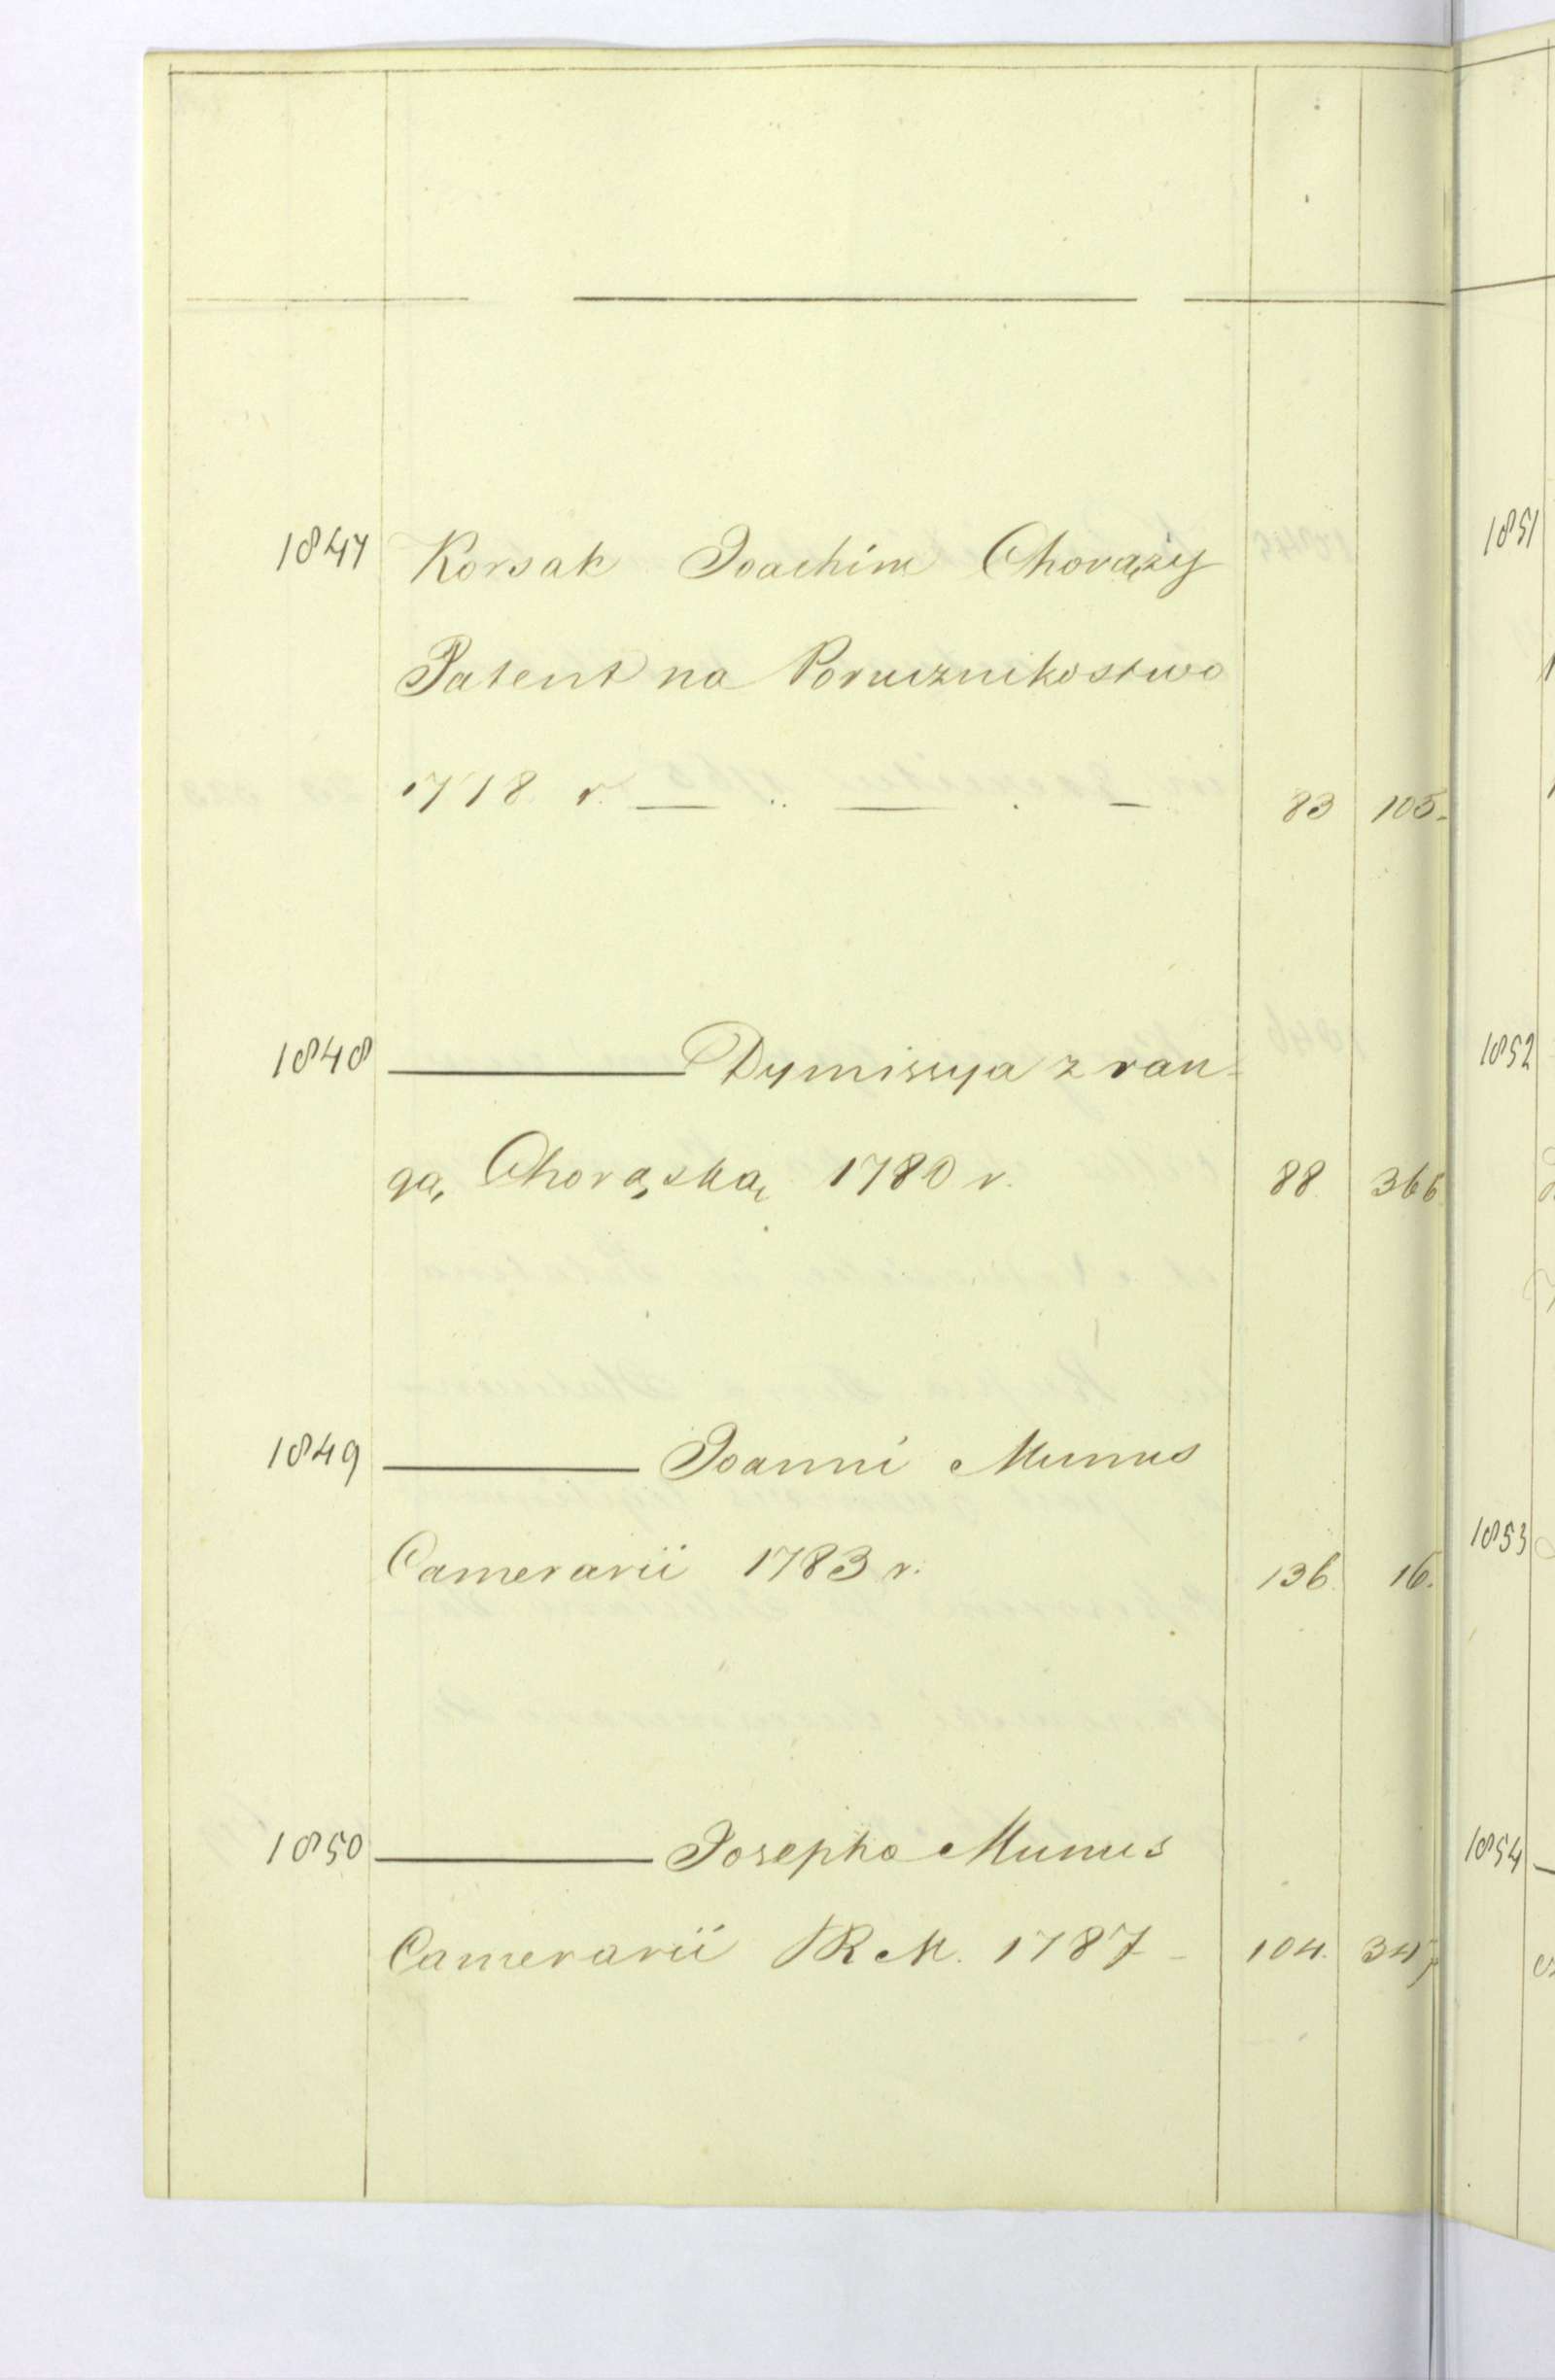 1847 Korsak Joachim Chorąży
Patent na Porucznikostwo
1718 r. — .. — . — 83 105.
1848 ——— Dymissya z ran-
gą Chorąską 1780 r. 88. 366
1849 ——— Joanni Munus
Camerarii 1783 r. 136. 16.
1850 ——— Josepho Munus
Camerarii R M. 1787 - 104. 347
1851
1852
1853
1854